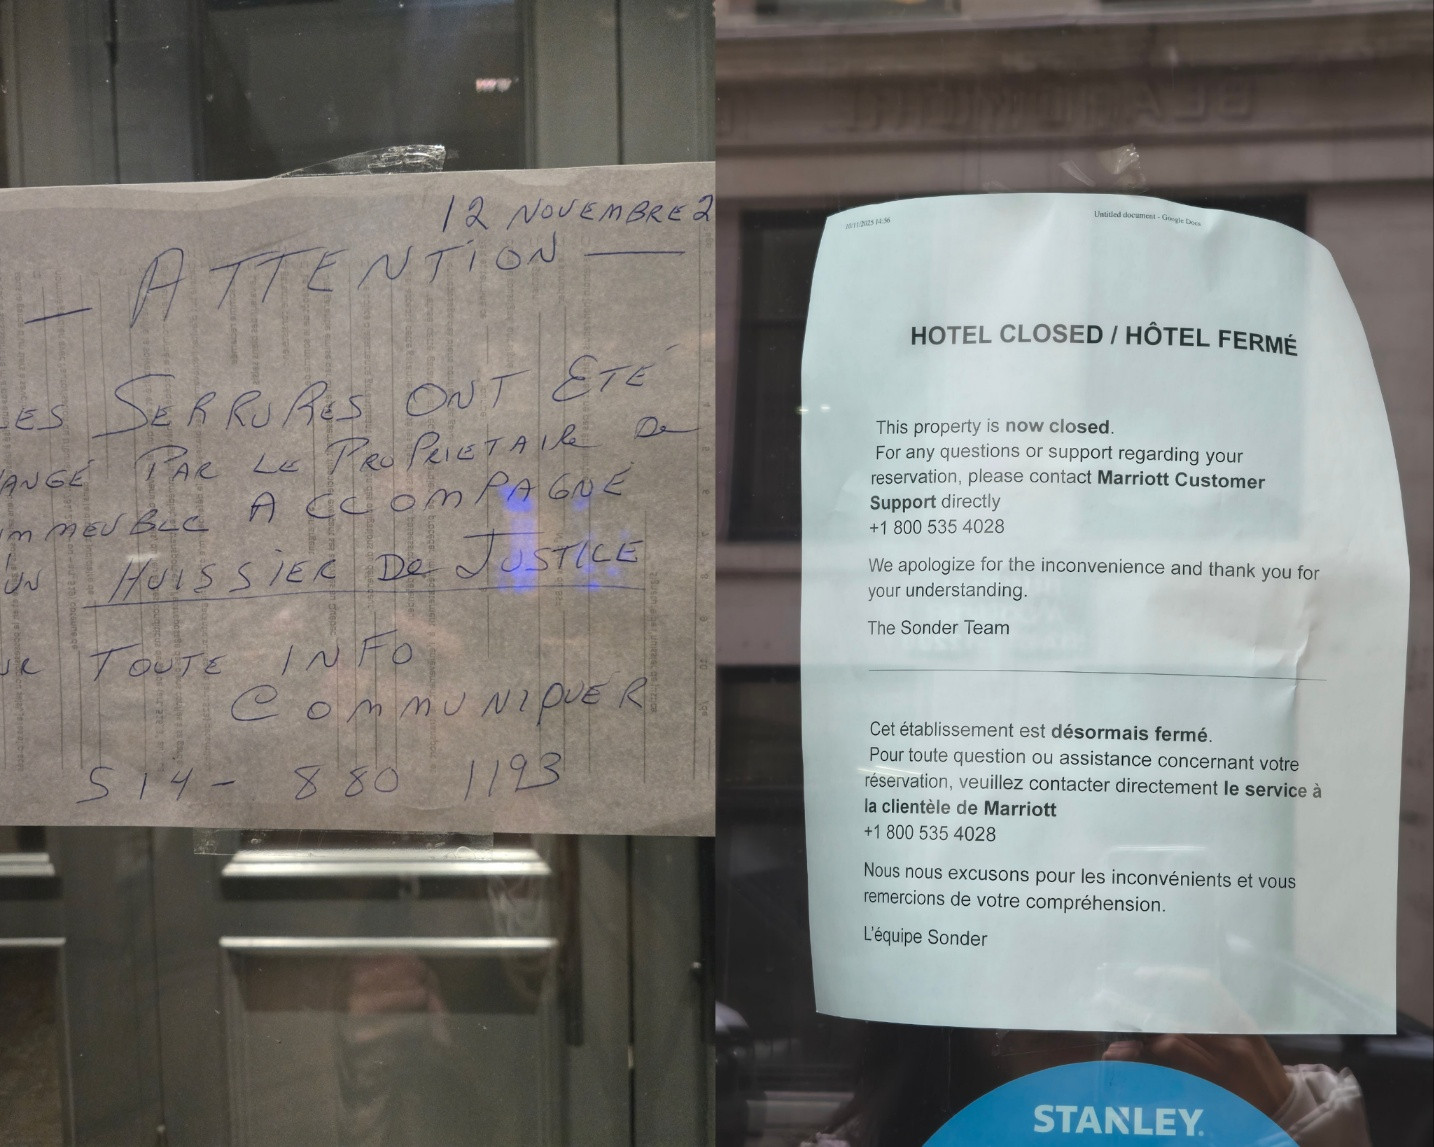 12 NOVEMBRE 2
— ATTENTION —
LES SERRURES ONT ÉTÉ
ANGÉ PAR LE PROPRIETAIRE DE
MMEUBLE ACCOMPAGNÉ
'UN HUISSIER DE JUSTICE
UR TOUTE INFO
COMMUNIQUER
514- 880 1193
10/11/2025 14:56
Untitled document - Google Docs
HOTEL CLOSED / HÔTEL FERMÉ
This property is now closed.
For any questions or support regarding your
reservation, please contact Marriott Customer
Support directly
+1 800 535 4028
We apologize for the inconvenience and thank you for
your understanding.
The Sonder Team
Cet établissement est désormais fermé.
Pour toute question ou assistance concernant votre
réservation, veuillez contacter directement le service à
la clientèle de Marriott
+1 800 535 4028
Nous nous excusons pour les inconvénients et vous
remercions de votre compréhension.
L'équipe Sonder
STANLEY.